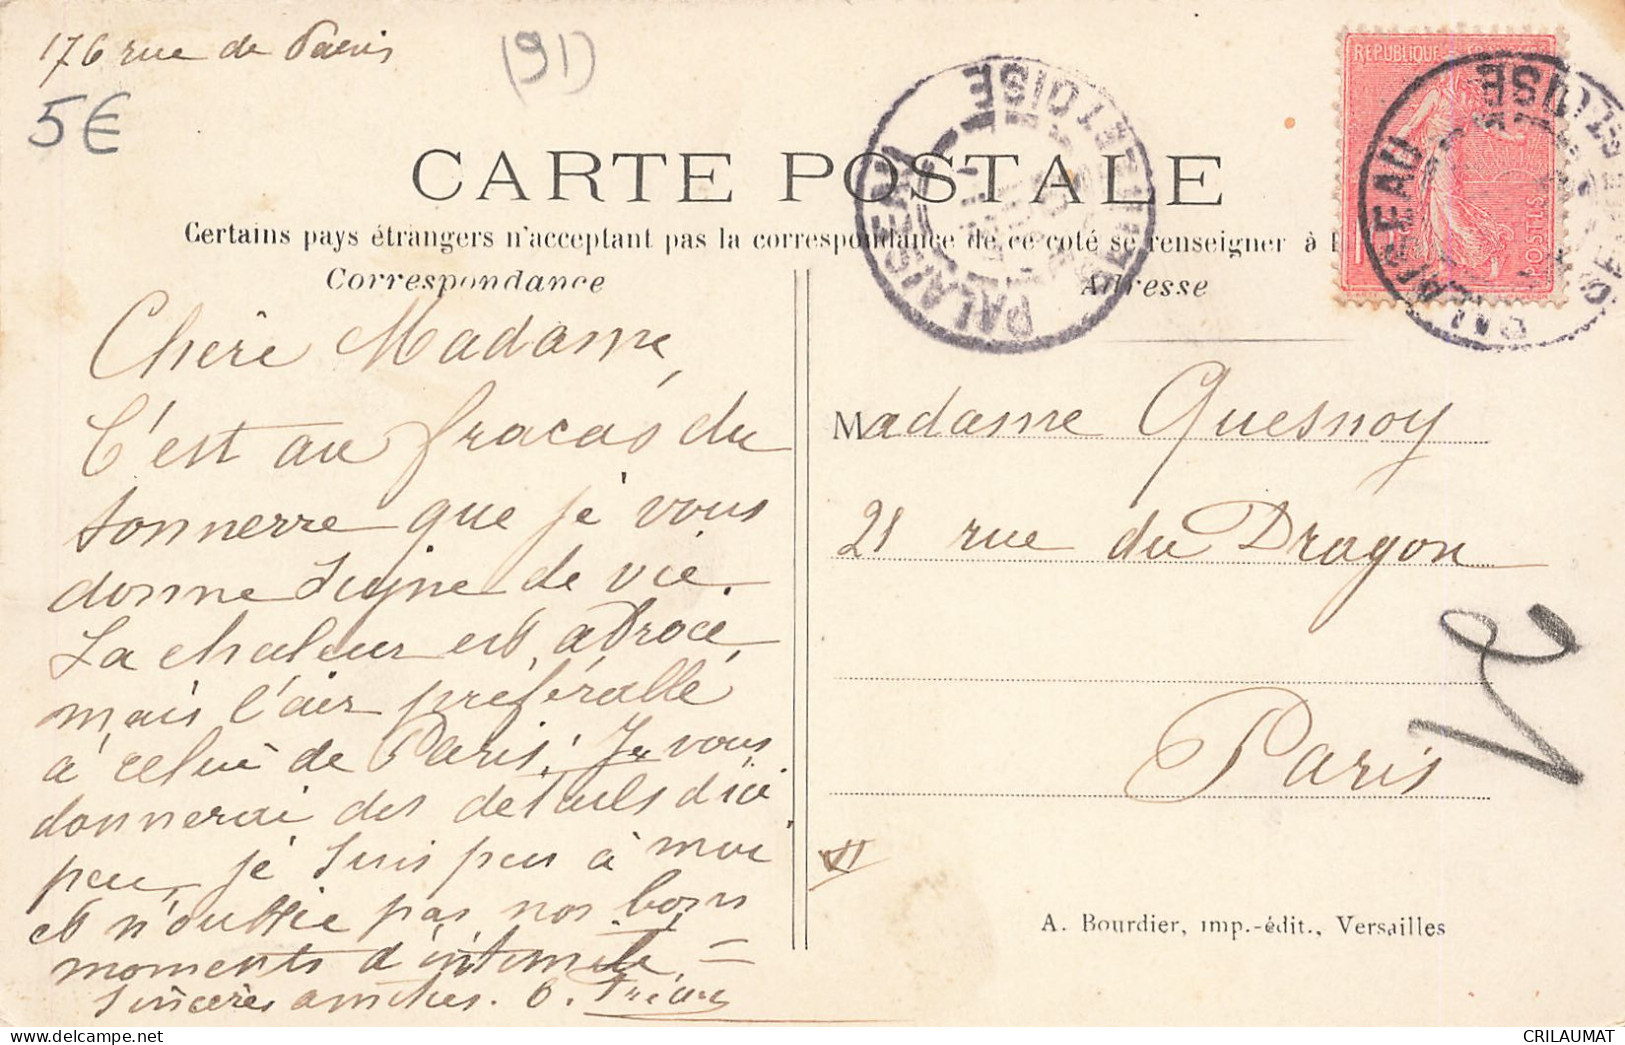 176 rue de Paris
(91)
5€
CARTE POSTALE
Certains pays étrangers n'acceptant pas la correspondance de ce coté se renseigner à l
Correspondance
Adresse
REPUBLIQUE
POSTES
PALAISEAU
PALAISEAU
Chère Madame,
C'est au fracas du
tonnerre que je vous
donne signe de vie.
La chaleur est atroce,
mais l'air préférable
à celui de Paris. Je vous
donnerai des détails d'ici
peu, je suis peu à moi
et n'oublie pas nos bons
moments d'intimité. =
Sincères amitiés.
Madame Quesnoy
21 rue du Dragon
Paris
A. Bourdier, imp.-édit., Versailles
CRILAUMAT